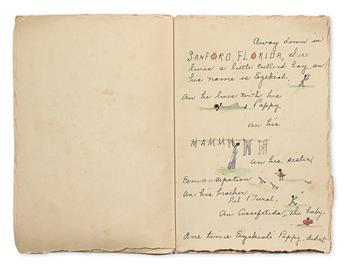 Away down in
SANFORD, FLORIDA, there
lives a little cullerd boy, an
his name is Ezekiel,
An he lives with his
Pappy
an his
MAMMY
an his sister,
Emancipation
An his brother
Lil Plural,
An Assafetida, the baby
One time Ezekiel's Pappy, didn't